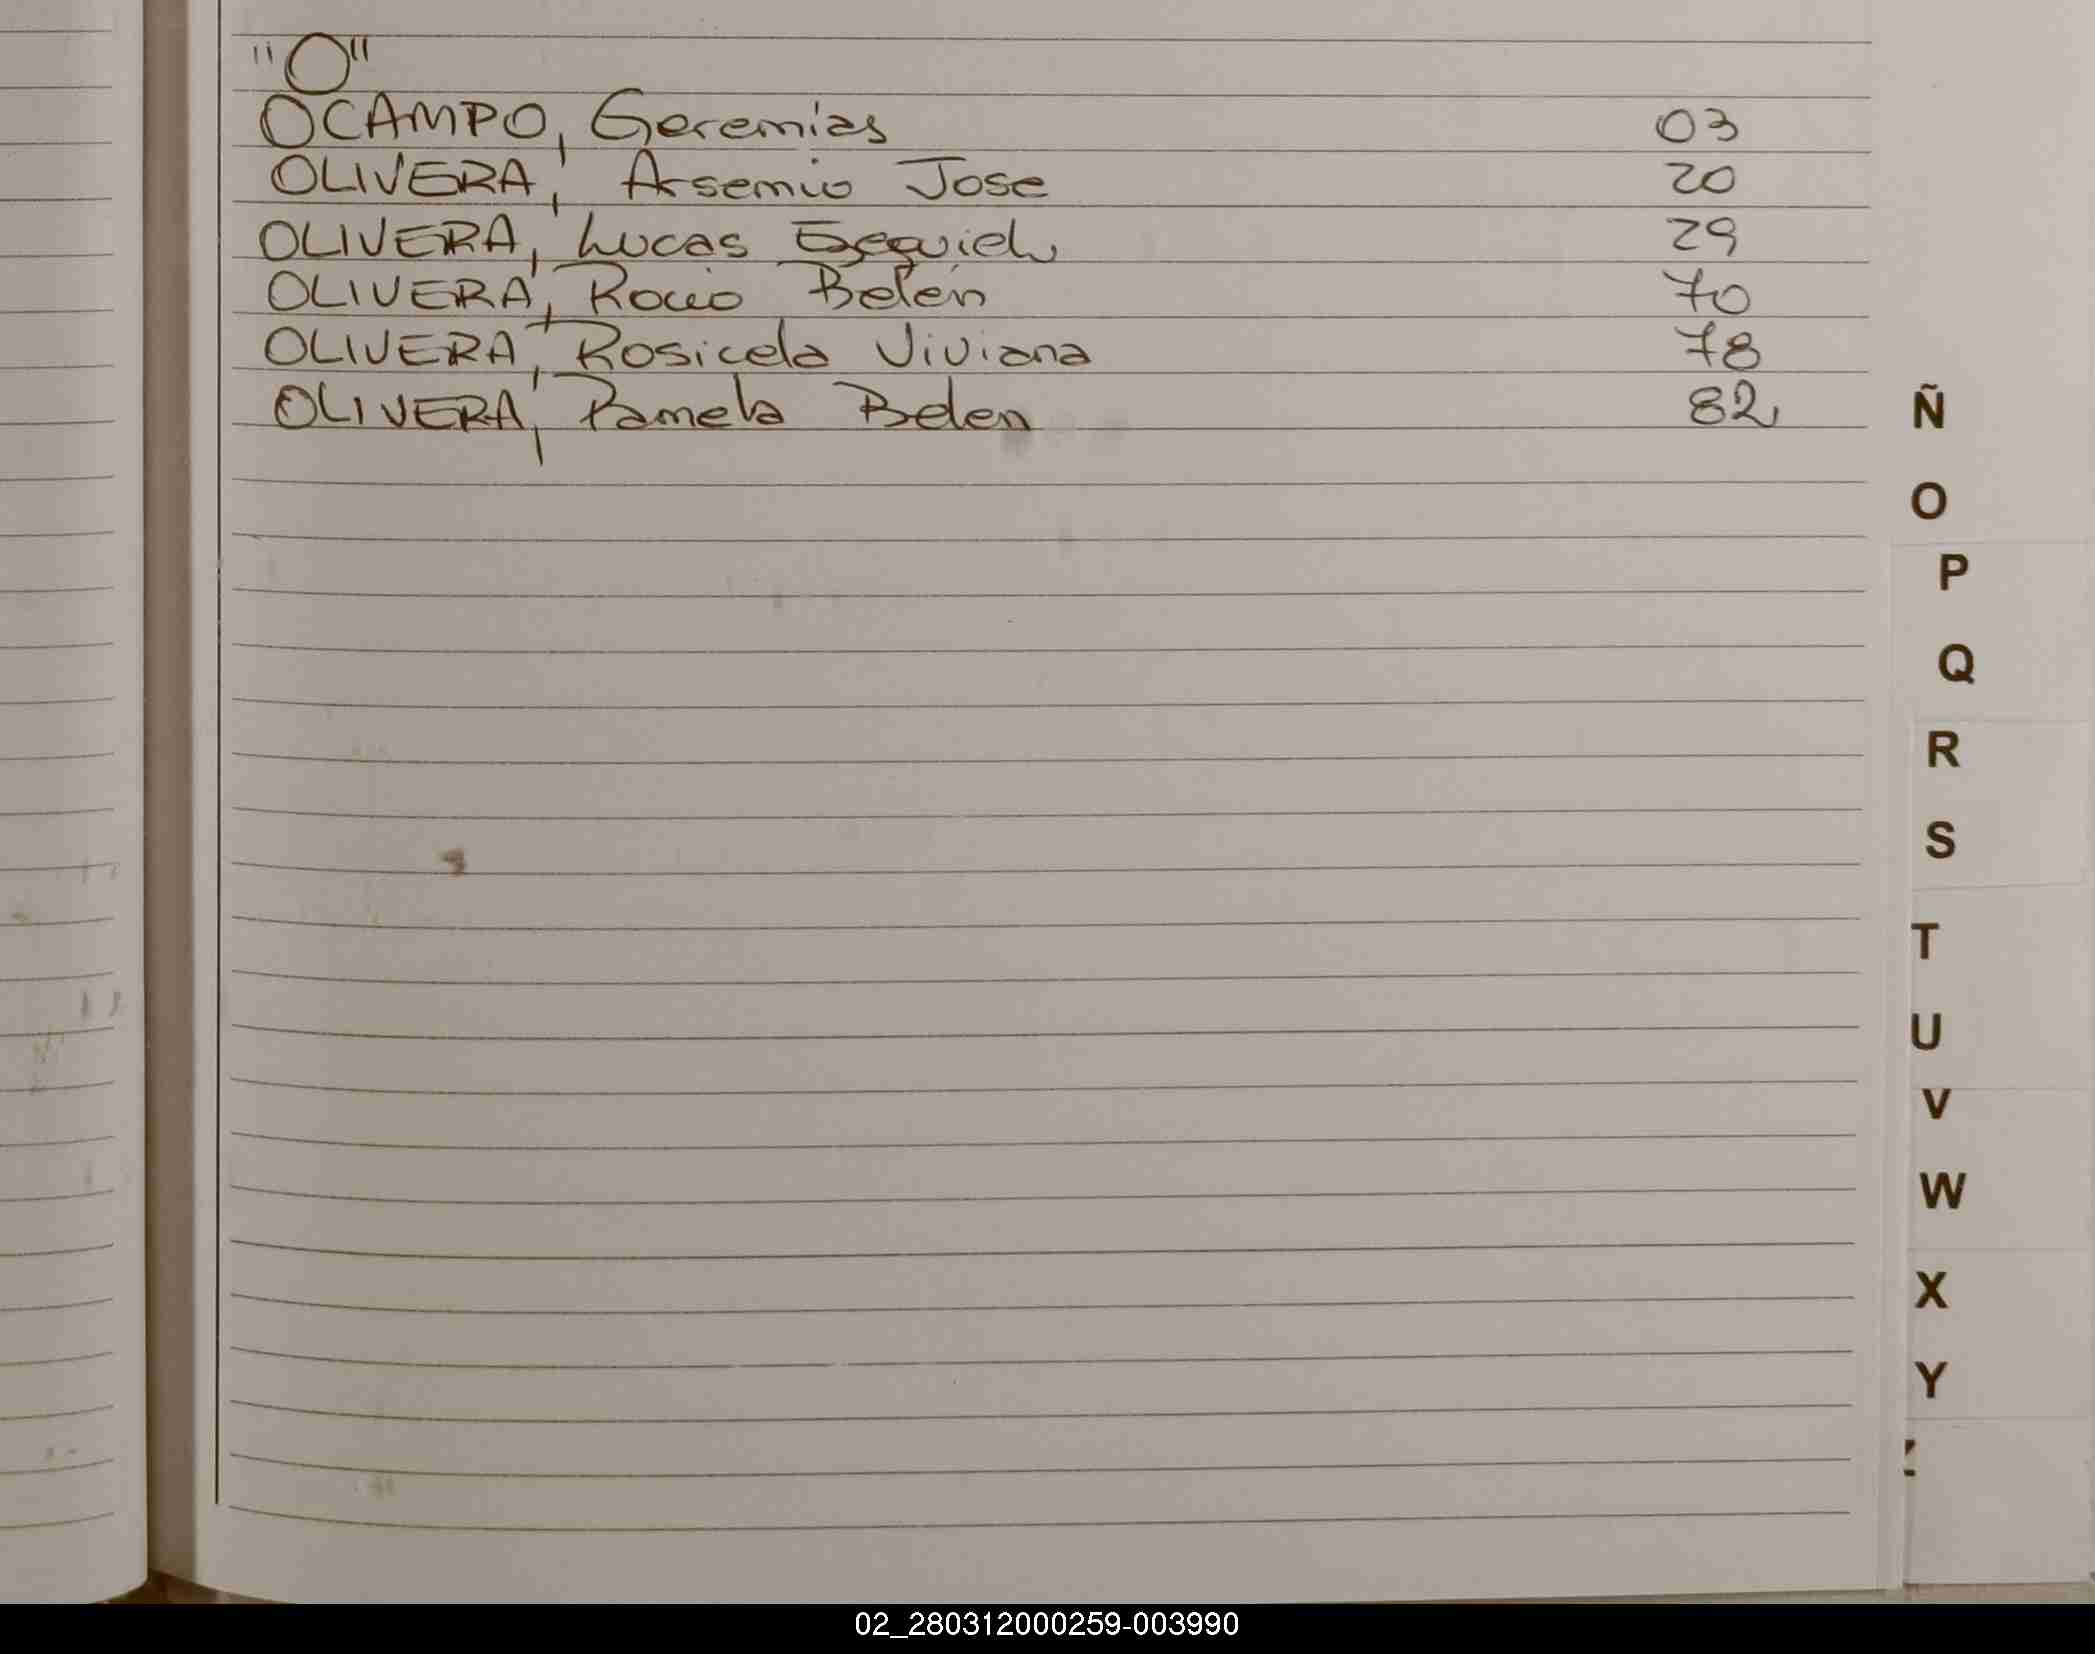 "O"
OCAMPO, Geremias 03
OLIVERA, Arsemio Jose 20
OLIVERA, Lucas Esequiel 29
OLIVERA, Rocio Belén 70
OLIVERA, Rosicela Viviana 78
OLIVERA, Pamela Belen 82
Ñ
O
P
Q
R
S
T
U
V
W
X
Y
Z
02_280312000259-003990